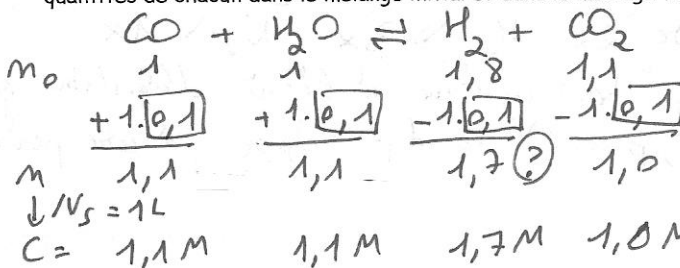 CO + H₂O ⇌ H₂ + CO₂
n₀ 1 1 1,8 1,1
+1.0,1 +1.0,1 -1.0,1 -1.0,1
n 1,1 1,1 1,7 ? 1,0
↓/Vs = 1L
C = 1,1M 1,1M 1,7M 1,0M